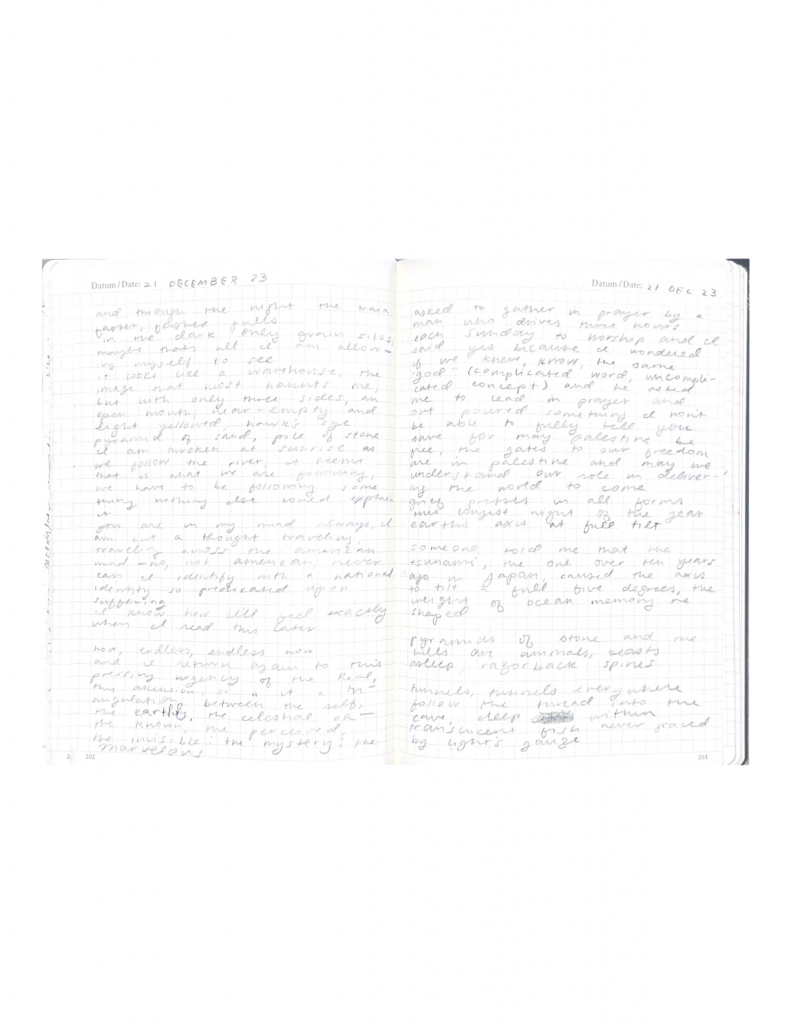 Datum / Date: 21 DECEMBER 23
and through the night the train
faster, faster pulls
in the dark only grain silos,
maybe that's all I am allow-
ing myself to see
it looks like a warehouse, the
image that most haunts me,
but with only three sides, an
open mouth, near-empty and
light yellowed, hawk's eye
pyramid of sand, pile of stone
I am awoken at sunrise as
we follow the river, it seems
that is what we are following,
we have to be following some
thing nothing else could explain
it
you are in my mind always, I
am but a thought traveling,
traveling across the american
mind - no, not american, never
can I identify with a national
identity so predicated upon
suffering
I know how I'll feel exactly
when I read this later
now, endless, endless now
and I return again to this
pressing urgency of the Real,
this ascension, or is it a tri-
angulation between the self,
the earthly, the celestial or -
the known, the perceived,
the invisible: the mystery: the
marvelous
202
Datum / Date: 21 DEC 23
asked to gather in prayer by a
man who drives three hours
each Sunday to worship and I
said yes because I wondered
if we knew, know, the same
"god" (complicated word, uncompli-
cated concept) and he asked
me to lead in prayer and
out poured something I won't
be able to fully tell you
save for may palestine be
free, the gates to our freedom
are in palestine and may we
understand our role in deliver-
ing the world to come
grief presses in all forms
this longest night of the year
earth's axis at full tilt
someone told me that the
tsunami, the one over ten years
ago in Japan, caused the axis
to tilt a full five degrees, the
weight of ocean memory re
shaped
pyramids of stone and the
hills are animals, beasts
asleep, razorback spines
tunnels, tunnels everywhere
follow the thread into the
cave, deep within
translucent fish never graced
by light's gauze
203